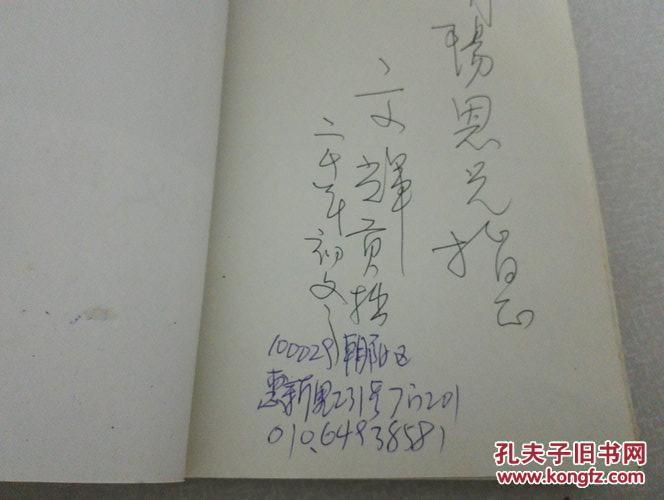 陽恩兄指正
文輝貢拙
二千年初文
100029朝阳区
惠新里231号7门201
010.64938581
孔夫子旧书网
kongfz.com